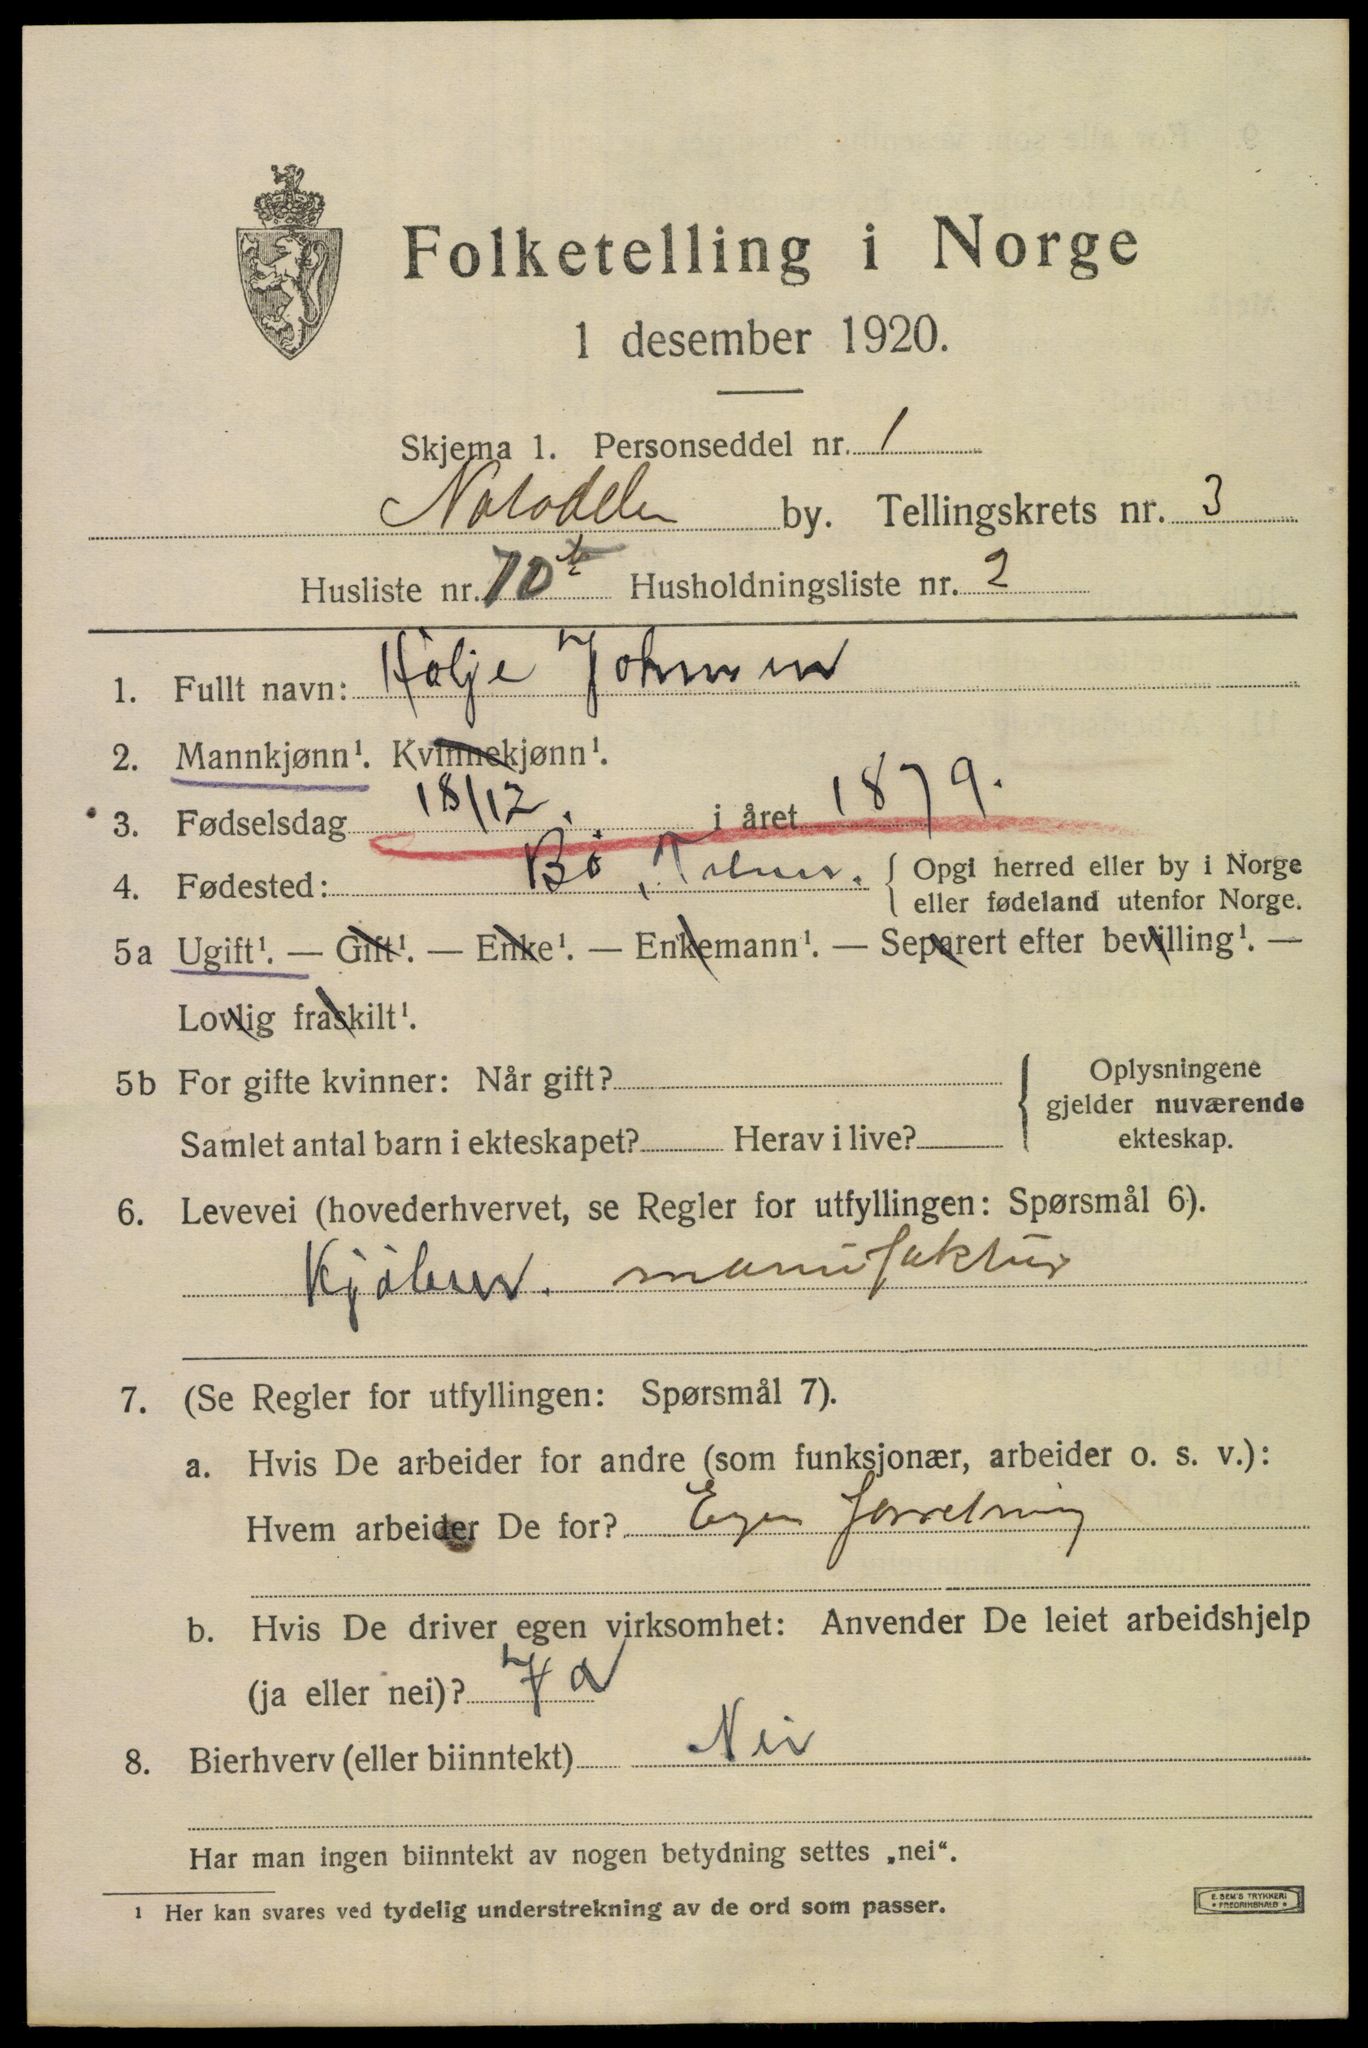 Folketelling i Norge
1 desember 1920.
Skjema 1. Personseddel nr. 1
Notodden by. Tellingskrets nr. 3
Husliste nr. 70 b Husholdningsliste nr. 2
1. Fullt navn: Hölje Johnsen
2. Mannkjønn¹. Kvinnekjønn¹.
3. Fødselsdag 18/12. i året 1879.
4. Fødested: Bö, Telem. { Opgi herred eller by i Norge
eller fødeland utenfor Norge.
5a Ugift¹. — Gift¹. — Enke¹. — Enkemann¹. — Separert efter bevilling¹. —
Lovlig fraskilt¹.
5b For gifte kvinner: Når gift? { Oplysningene
gjelder nuværende
Samlet antal barn i ekteskapet? Herav i live? ekteskap.
6. Levevei (hovederhvervet, se Regler for utfyllingen: Spørsmål 6).
Kjöbm. manufaktur
7. (Se Regler for utfyllingen: Spørsmål 7).
a. Hvis De arbeider for andre (som funksjonær, arbeider o. s. v.):
Hvem arbeider De for? Egen forretning
b. Hvis De driver egen virksomhet: Anvender De leiet arbeidshjelp
(ja eller nei)? Ja
8. Bierhverv (eller biinntekt) Nei
Har man ingen biinntekt av nogen betydning settes „nei“.
1 Her kan svares ved tydelig understrekning av de ord som passer.
E. SEM'S TRYKKERI
* FREDRIKSHALD *